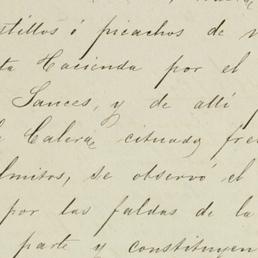 stillos ó picachos de
ta Hacienda por el
Sauces, y de allí
Calera cituada fre
lmitos, se observó el
por las faldas de la
parte y constituyen